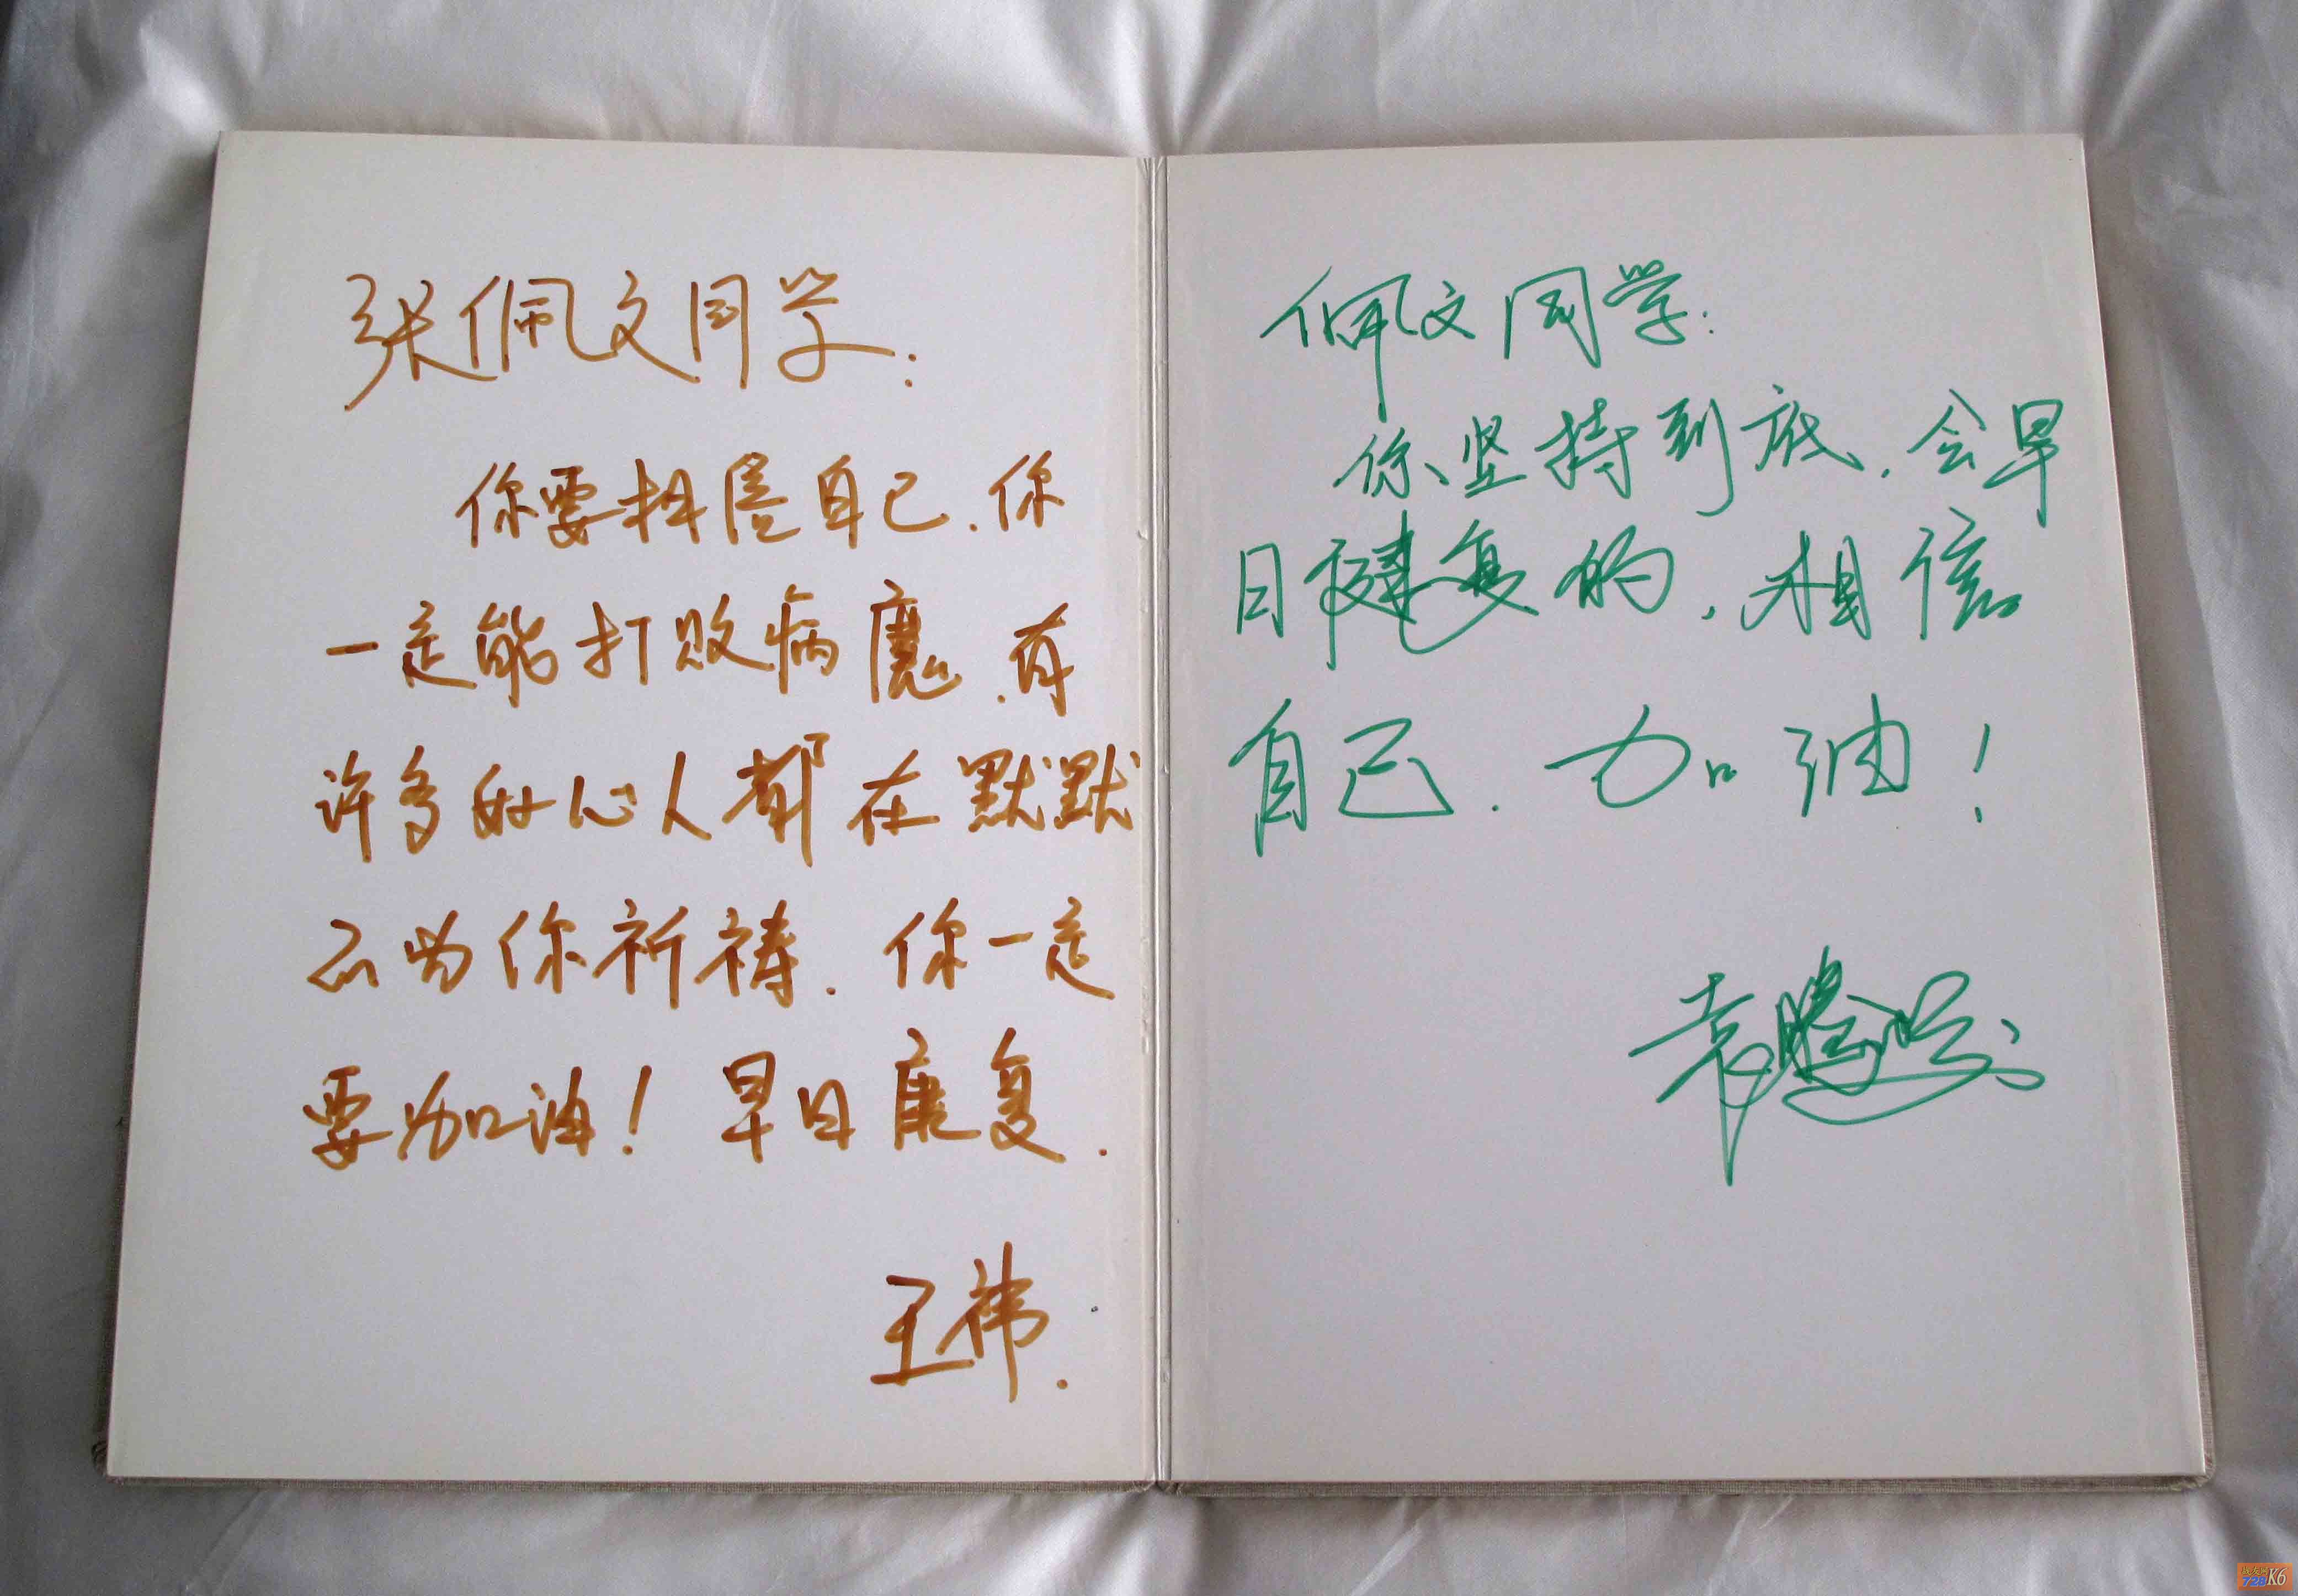 张佩文同学:
你要相信自己.你
一定能打败病魔.有
许多好心人都在默默
而为你祈祷.你一定
要加油!早日康复.
王祎.
佩文同学:
你坚持到底.会早
日健复的.相信
自己.加油!
袁腾飞
728K6